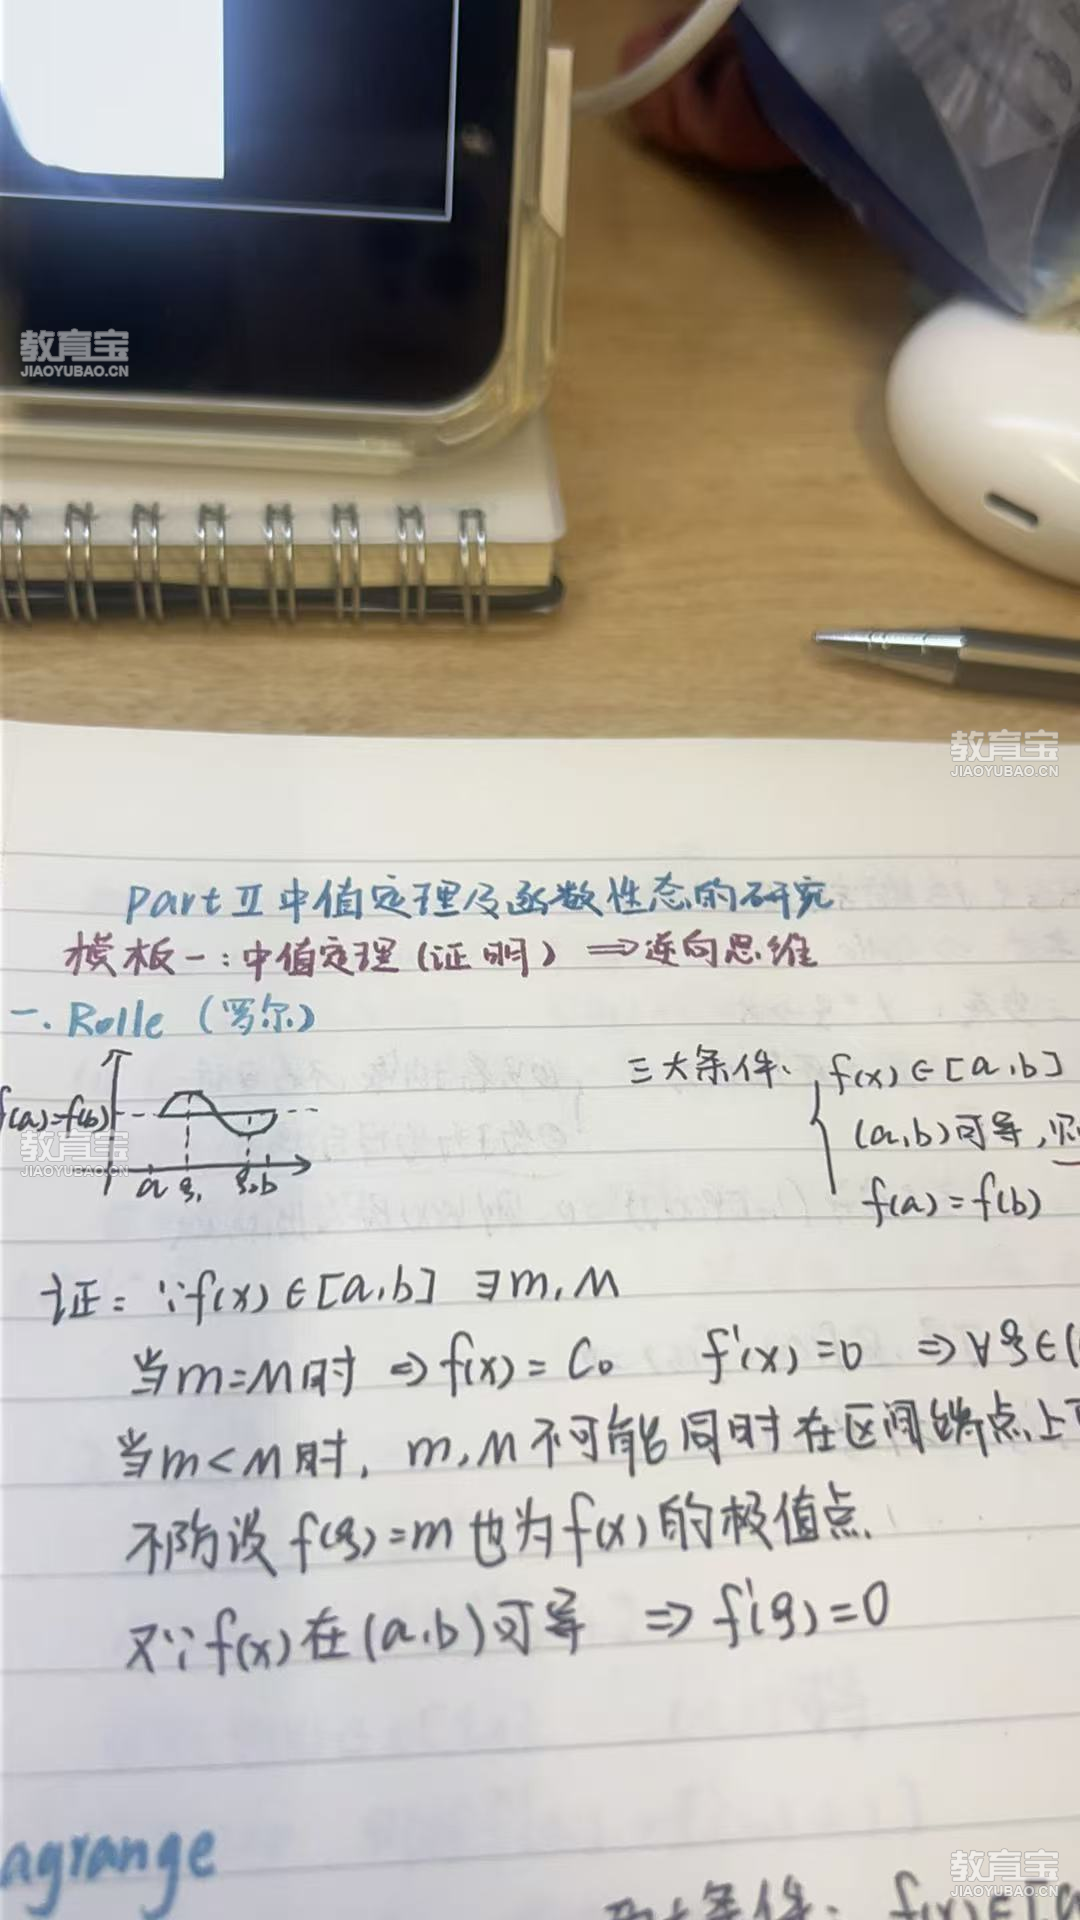 教育宝
JIAOYUBAO.CN
教育宝
JIAOYUBAO.CN
Part Ⅱ 中值定理及函数性态的研究
模板一:中值定理(证明) ⇒逆向思维
一. Rolle (罗尔)
三大条件: f(x)∈[a,b]
f(a)=f(b)
(a,b)可导,则
教育宝
JIAOYUBAO.CN
a ξ₁ ξ₂ b
f(a)=f(b)
证: ∵f(x)∈[a,b] ∃m,M
当m=M时 ⇒ f(x)=C₀ f'(x)=0 ⇒∀ξ∈(
当m<M时, m,M不可能同时在区间端点上
不防设 f(ξ)=m也为f(x)的极值点.
又∵f(x)在(a,b)可导 ⇒ f'(ξ)=0
agrange
教育宝
JIAOYUBAO.CN
大条件: f(x)∈[a